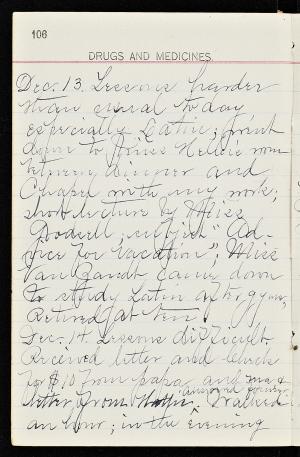 106
DRUGS AND MEDICINES.
Dec. 13. Lessons harder
than usual today
especially Latin; went
down to Miss Nellie
dinner and
Chapel with my work;
short lecture by Miss
Goodsell, subject "Ad-
vice for Vacation"; Miss
Van Zandt came down
to study Latin after gym,
Retired at ten.
Dec. 14. Lessons difficult.
Received letter and check
for $10 from papa and
letter from Walked
an hour; in the evening